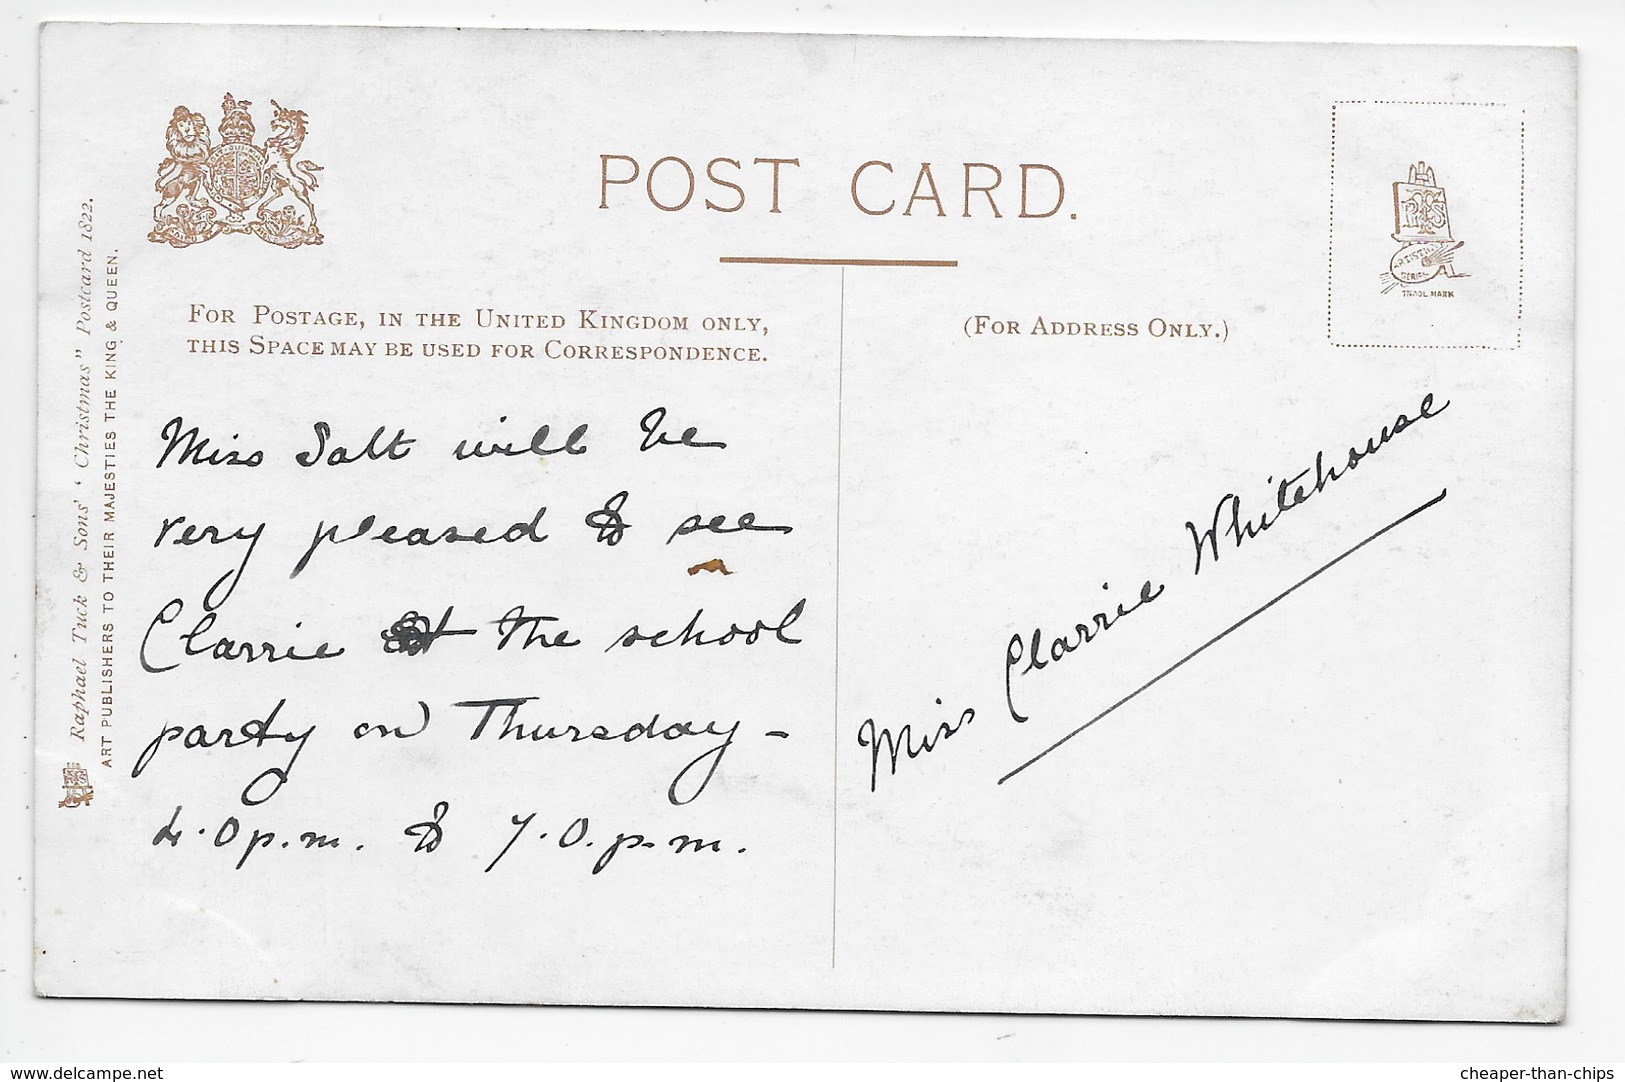 POST CARD.
FOR POSTAGE, IN THE UNITED KINGDOM ONLY,
THIS SPACE MAY BE USED FOR CORRESPONDENCE.
(FOR ADDRESS ONLY.)
TRADE MARK
Raphael Tuck & Sons' "Christmas" Postcard 1822.
ART PUBLISHERS TO THEIR MAJESTIES THE KING & QUEEN.
Miss Salt will be
very pleased to see
Clarrie at the school
party on Thursday -
4.0 p.m. to 7.0. p.m.
Miss Clarrie Whitehouse
www.delcampe.net
cheaper-than-chips